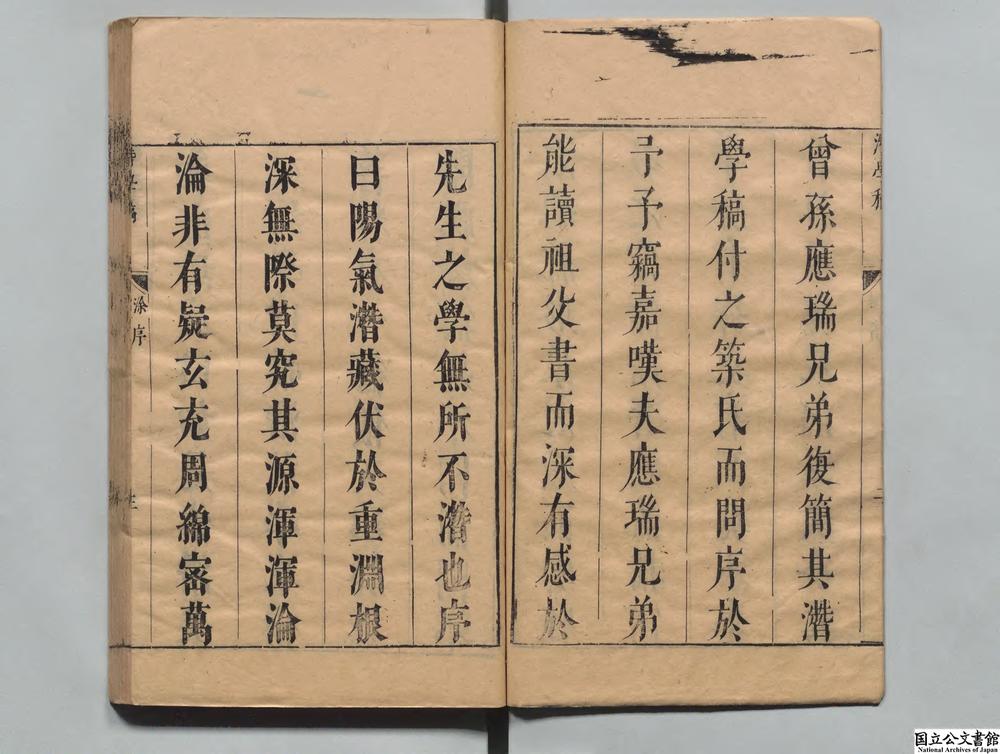 潛學稿
曾孫應瑞兄弟復簡其潛
學稿付之築氏而問序於
予予竊嘉嘆夫應瑞兄弟
能讀祖父書而深有感於
先生之學無所不潛也序
曰陽氣潛藏伏於重淵根
深無際莫究其源渾渾淪
淪非有疑玄充周綿密萬
學稿
涂序
国立公文書館
National Archives of Japan